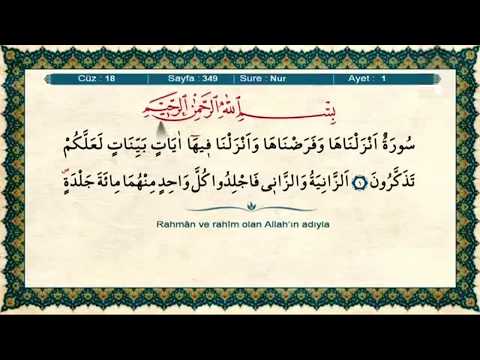 Cüz : 18 Sayfa : 349 Sure : Nur Ayet : 1
بِسْمِ اللّٰهِ الرَّحْمٰنِ الرَّحٖيمِ
سُورَةٌ اَنْزَلْنَاهَا وَفَرَضْنَاهَا وَاَنْزَلْنَا فٖيهَٓا اٰيَاتٍ بَيِّنَاتٍ لَعَلَّكُمْ
تَذَكَّرُونَ ﴿١﴾ اَلزَّانِيَةُ وَالزَّانٖي فَاجْلِدُوا كُلَّ وَاحِدٍ مِنْهُمَا مِائَةَ جَلْدَةٍࣕ
Rahmân ve rahîm olan Allah'ın adıyla